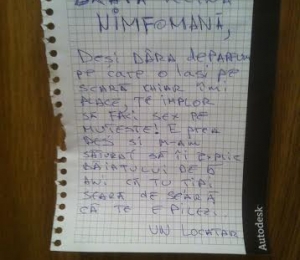 NIMFOMANĂ,
DEȘI DÂRA DE PARFUM
PE CARE O LAȘI PE
SCARĂ CHIAR ÎMI
PLACE, TE IMPLOR
SĂ FACI SEX PE
MUTEȘTE! E PREA
DES ȘI M-AM
SĂTURAT SĂ ÎI EXPLIC
BĂIATULUI DE 8
ANI CĂ TU ȚIPI
SEARĂ DE SEARĂ
CĂ TE EPILEZI.
UN LOCATAR
Autodesk